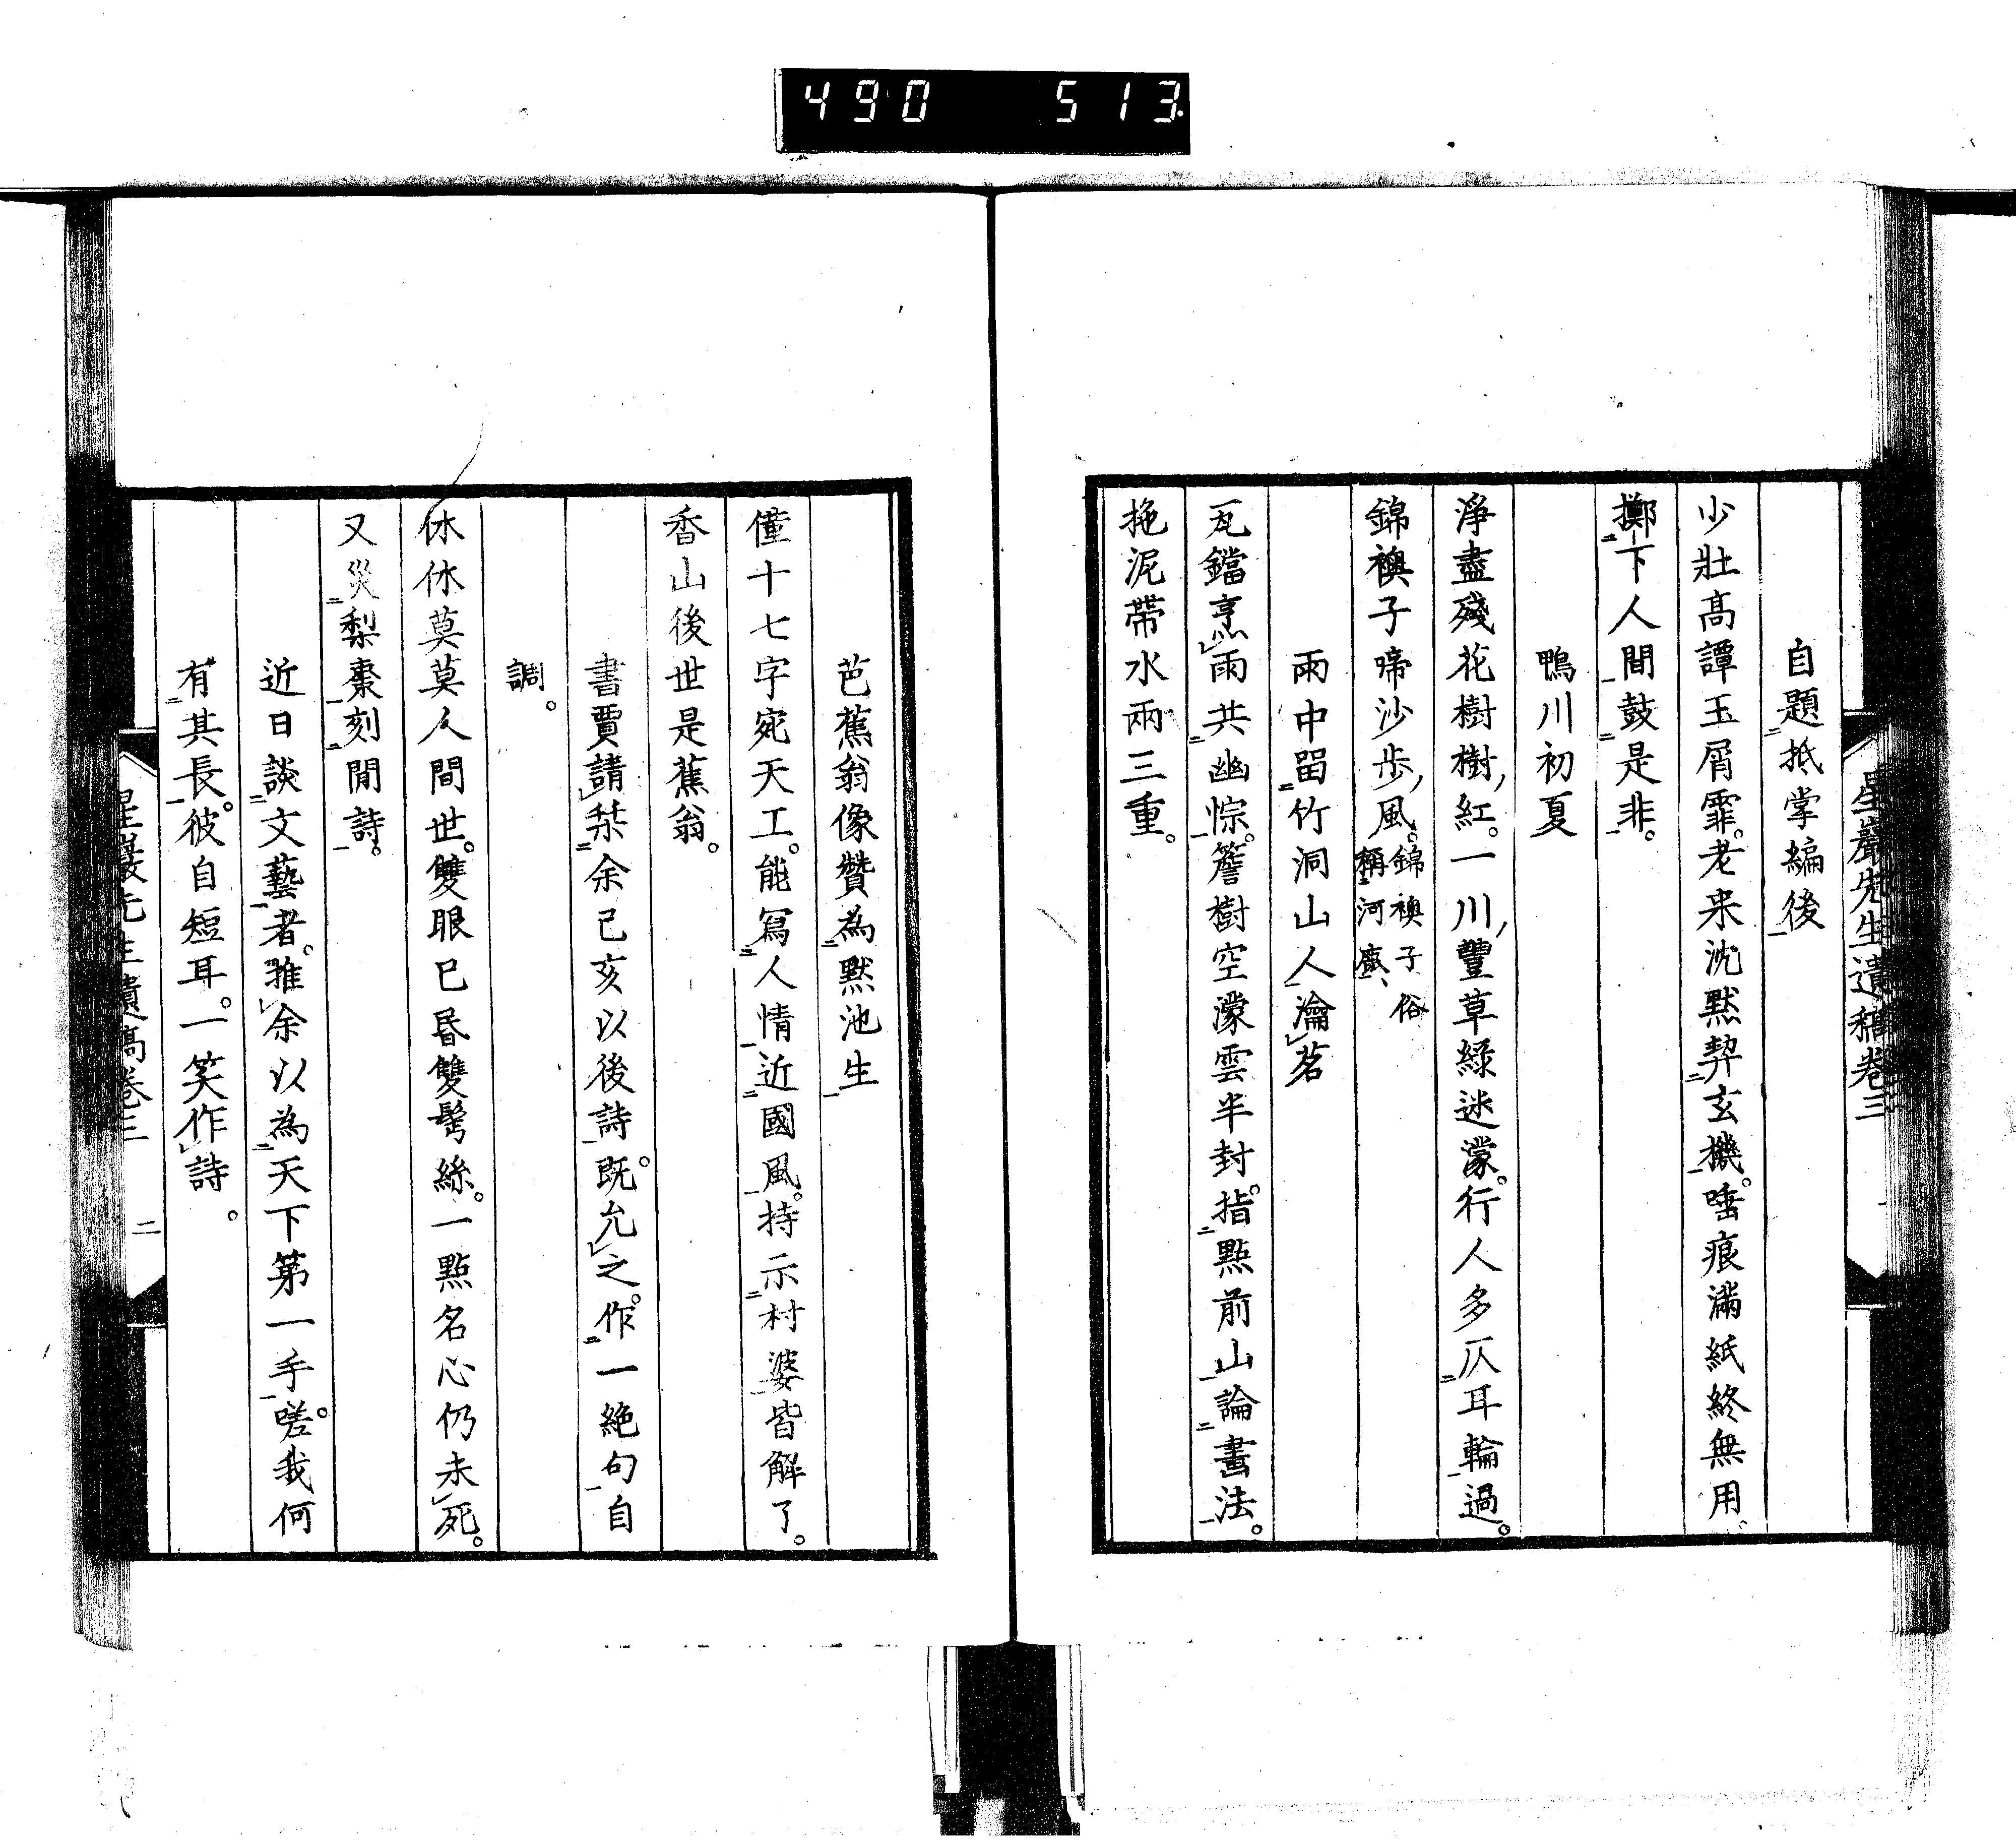 490 513
星巖先生遺稿卷三
自題抵掌編後
少壯高譚玉屑霏。老来沈默契玄機。唾痕滿紙終無用。
擲下人間鼓是非。
鴨川初夏
淨盡殘花樹樹紅。一川豐草緑迷濛。行人多仄耳輪過。
錦襖子啼沙步風。錦襖子俗
稱河鹿
雨中留竹洞山人瀹茗
瓦鐺烹雨共幽悰。簷樹空濛雲半封。指㸃前山論畫法。
拖泥帶水兩三重。
芭蕉翁像贊為默池生
僅十七字宛天工。能寫人情近國風。持示村婆皆解了。
香山後世是蕉翁。
書賈請栞余己亥以後詩。既允之。作一絶句自
調。
休休莫莫人間世。雙眼已昬雙鬢絲。一㸃名心仍未死。
又災梨棗刻閒詩。
近日談文藝者。推余以為天下第一手。嗟我何
有其長。彼自短耳。一笑作詩。
星巖先生遺稿卷三
二